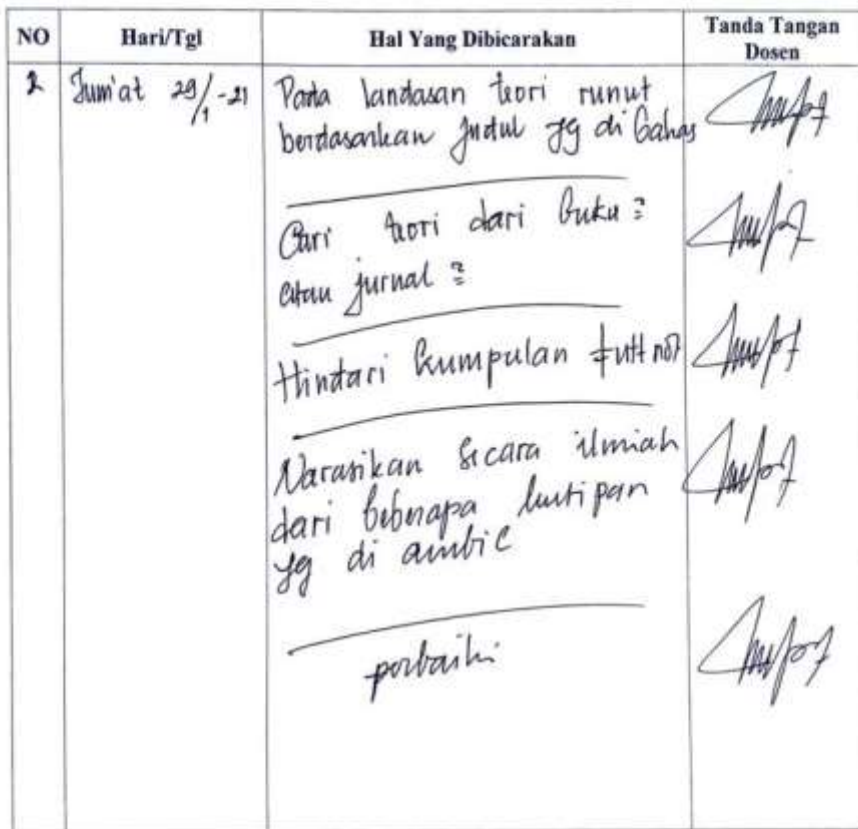 NO Hari/Tgl Hal Yang Dibicarakan Tanda Tangan Dosen
2 Jum'at 29/1-21 Pada landasan teori runut
berdasarkan judul yg di bahas
Cari teori dari buku =
atau jurnal =
Hindari kumpulan
Narasikan secara ilmiah
dari beberapa kutipan
yg di ambil
perbaiki